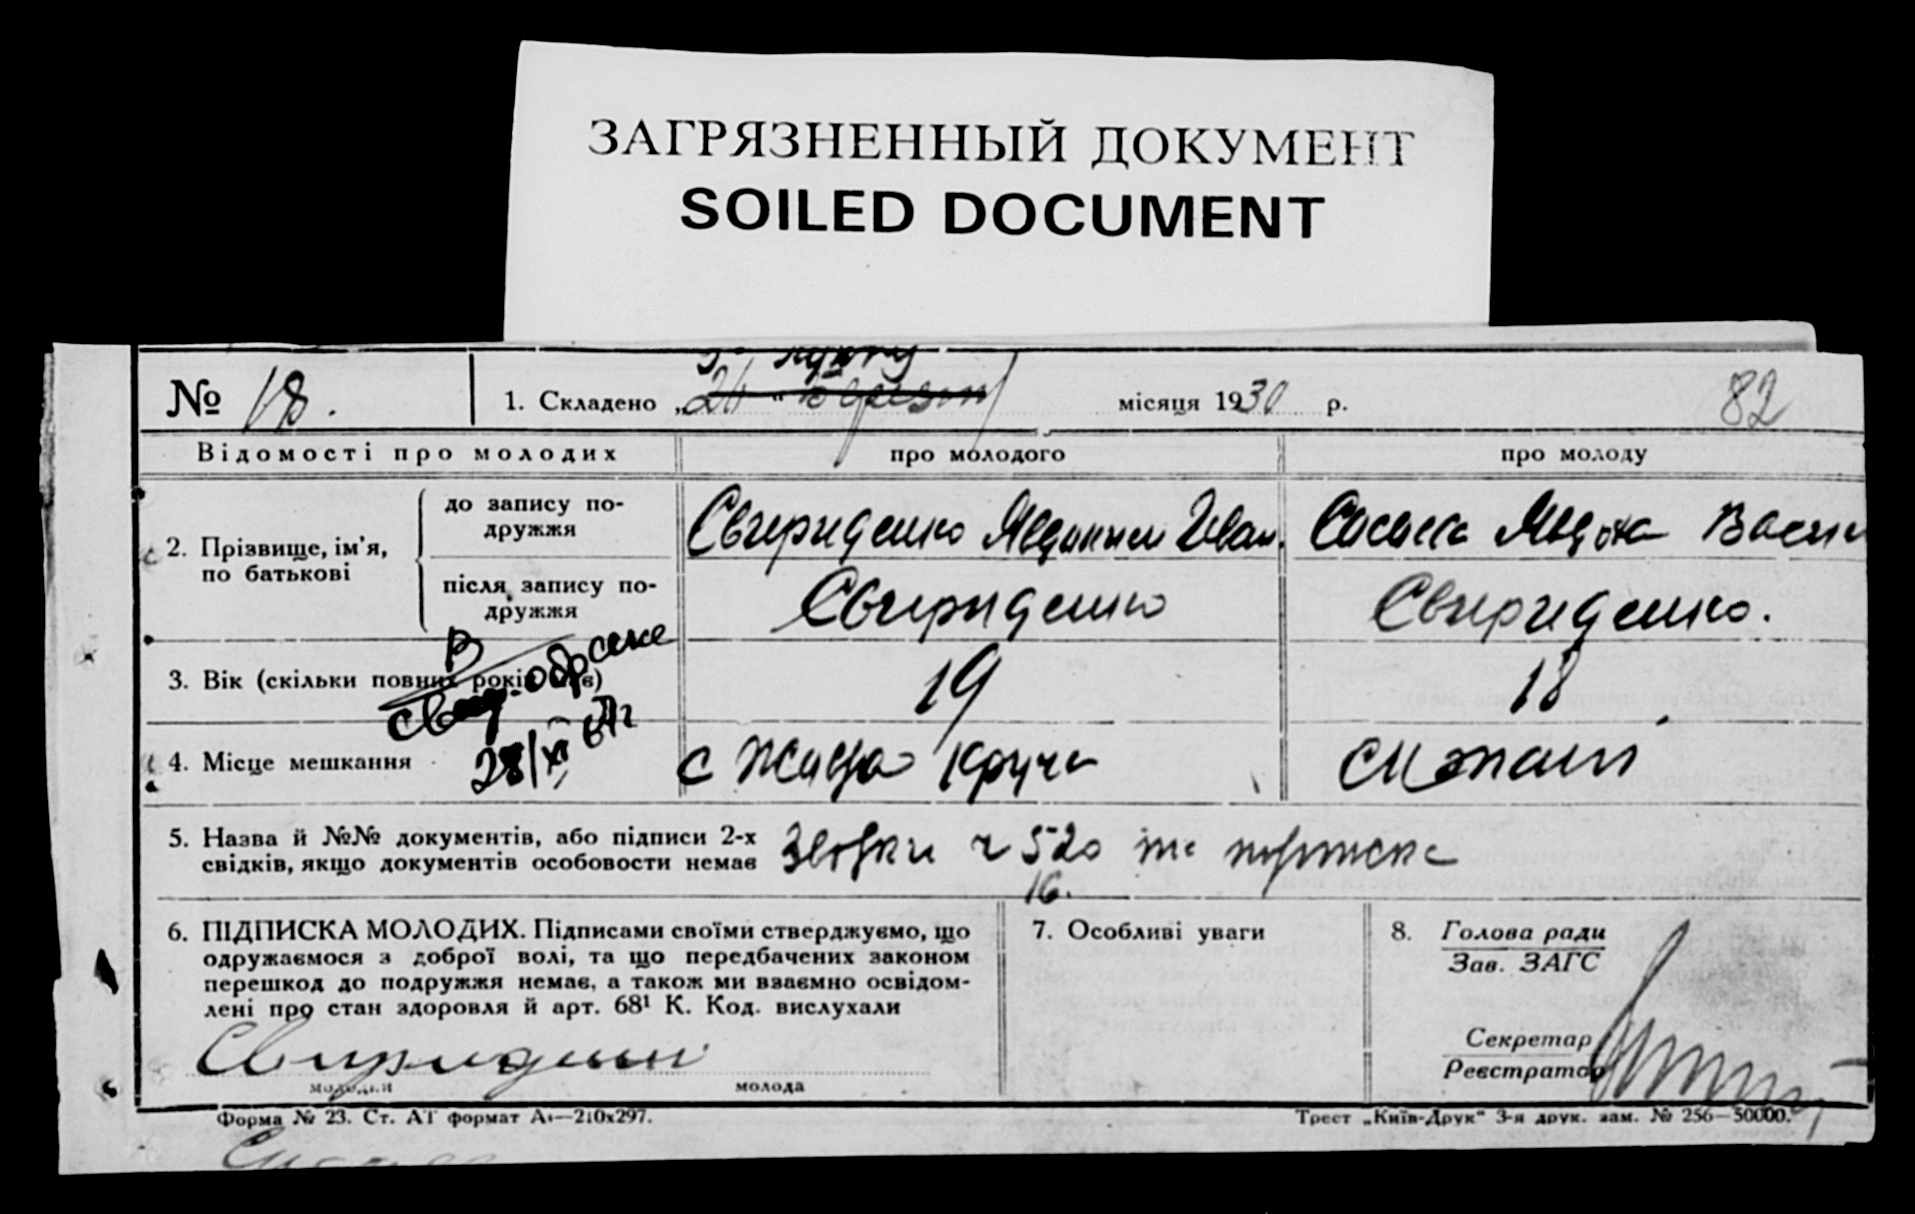 ЗАГРЯЗНЕННЫЙ ДОКУМЕНТ
SOILED DOCUMENT
№ 18.
1. Складено „26“ березня місяця 1930 р.
82
Відомості про молодих
про молодого
про молоду
2. Прізвище, ім’я,
по батькові
до запису по-
дружжя
Свириденко Явдоким Іван.
Сосновська Явдоха Васил
після запису по-
дружжя
Свириденко
Свириденко.
3. Вік (скільки повних років)
19
18
В
28/XI
4. Місце мешкання
с Круча
5. Назва й №№ документів, або підписи 2-х
свідків, якщо документів особовости немає
520 та
16.
6. ПІДПИСКА МОЛОДИХ. Підписами своїми стверджуємо, що
одружаємося з доброї волі, та що передбачених законом
перешкод до подружжя немає, а також ми взаємно освідом-
лені про стан здоровля й арт. 68¹ К. Код. вислухали
Свириденко
молодий
молода
7. Особливі уваги
8. Голова ради
Зав. ЗАГС
Секретар
Реєстратор
Форма № 23. Ст. АТ формат А₄—210х297.
Трест „Київ-Друк“ 3-я друк. зам. № 256—50000.